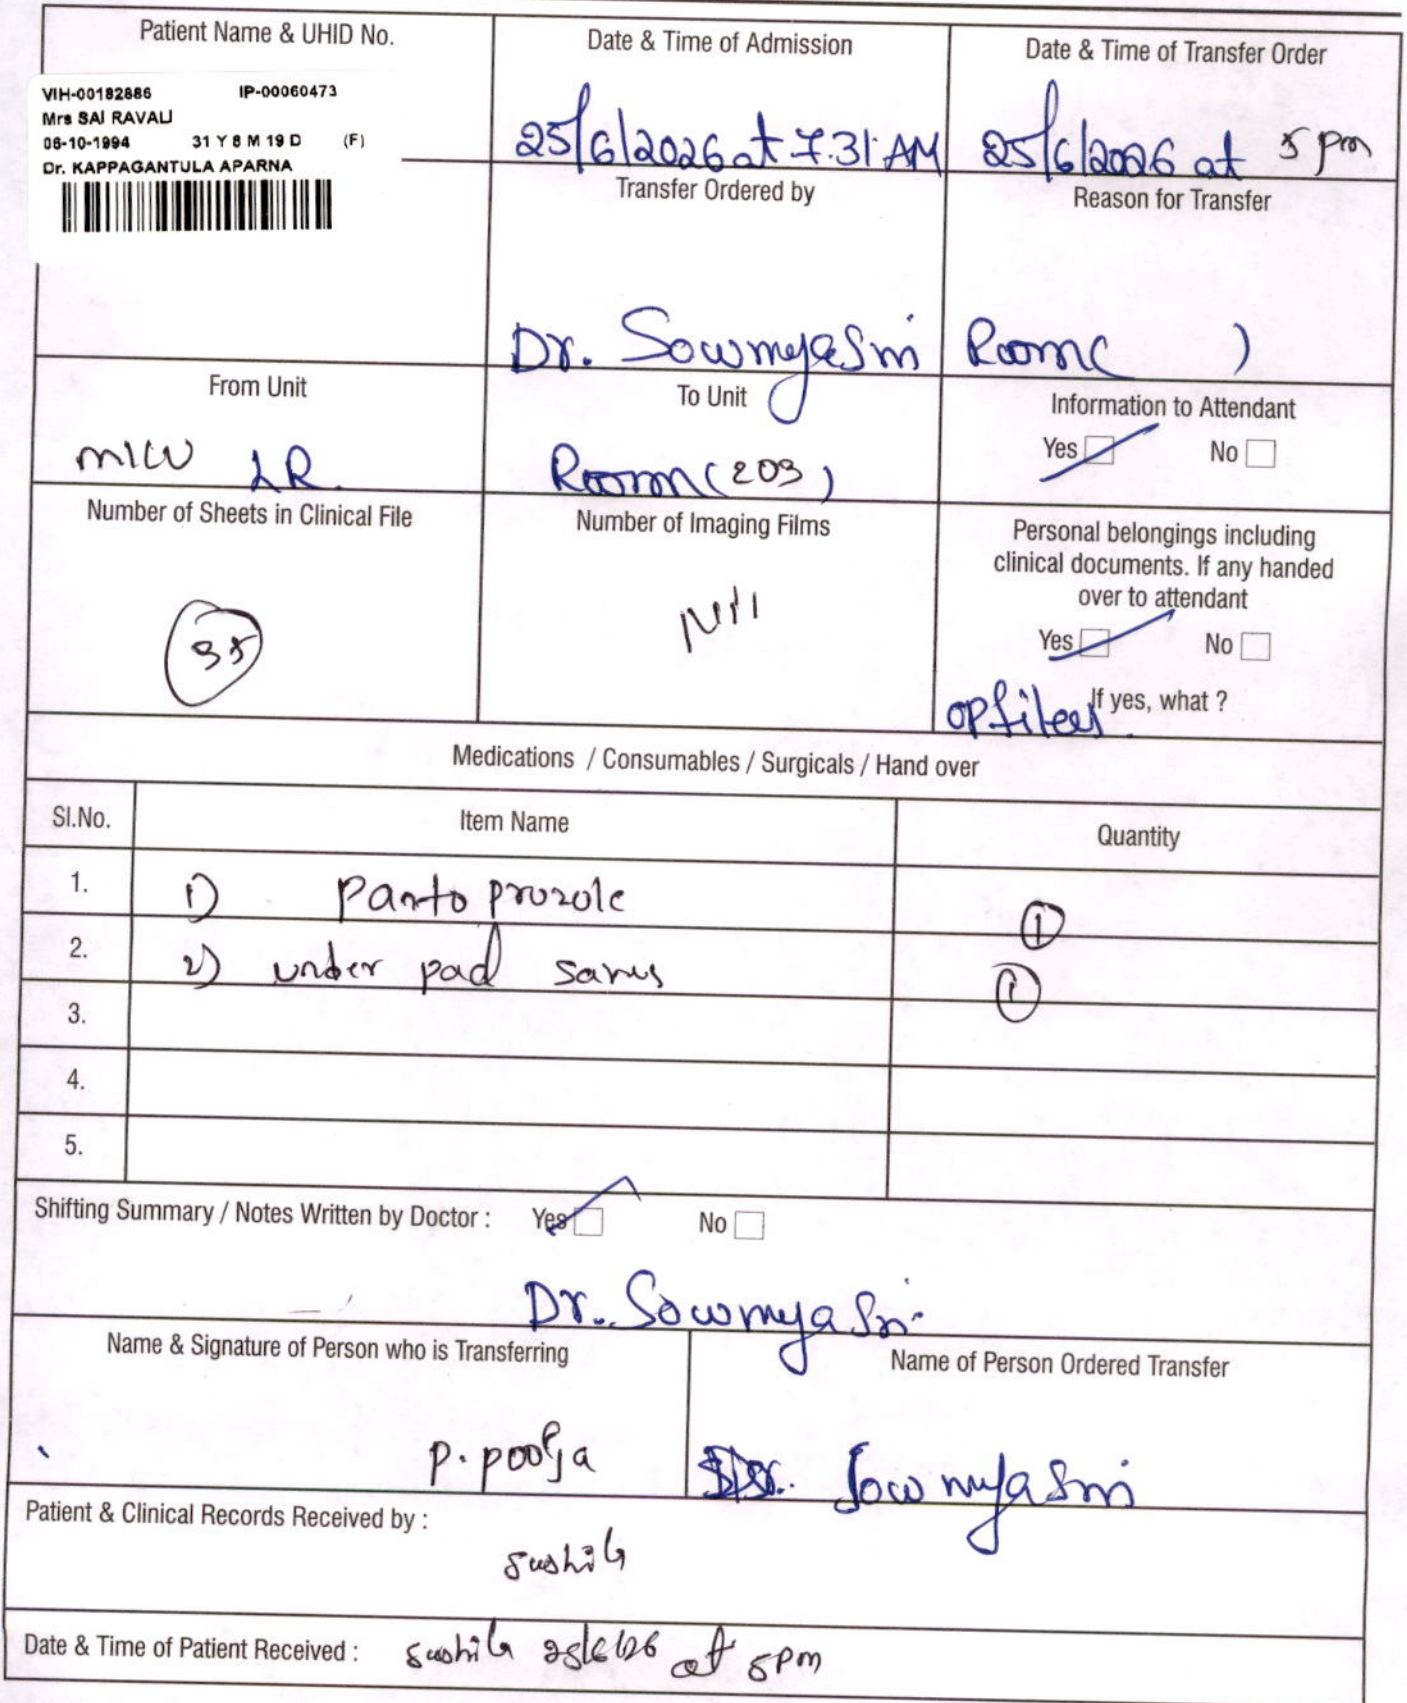 Patient Name & UHID No.
VIH-00182886 IP-00060473
Mrs SAI RAVALI
06-10-1994 31 Y 8 M 19 D (F)
Dr. KAPPAGANTULA APARNA
Date & Time of Admission
25/6/2026 at 7:31 AM
Date & Time of Transfer Order
25/6/2026 at 5 pm
Transfer Ordered by
Dr. Sowmya Sri
Reason for Transfer
Room( )
From Unit
MICU LR
To Unit
Room (203)
Information to Attendant
Yes No
Number of Sheets in Clinical File
35
Number of Imaging Films
Nil
Personal belongings including
clinical documents. If any handed
over to attendant
Yes No
If yes, what ?
op files
Medications / Consumables / Surgicals / Hand over
Sl.No. Item Name Quantity
1. 1) Panto prozole 1
2. 2) under pad 1
3.
4.
5.
Shifting Summary / Notes Written by Doctor : Yes No
Dr. Sowmya Sri
Name & Signature of Person who is Transferring
P. Pooja
Name of Person Ordered Transfer
Dr. Sowmya Sri
Patient & Clinical Records Received by :
Date & Time of Patient Received : 25/6/26 at 5pm